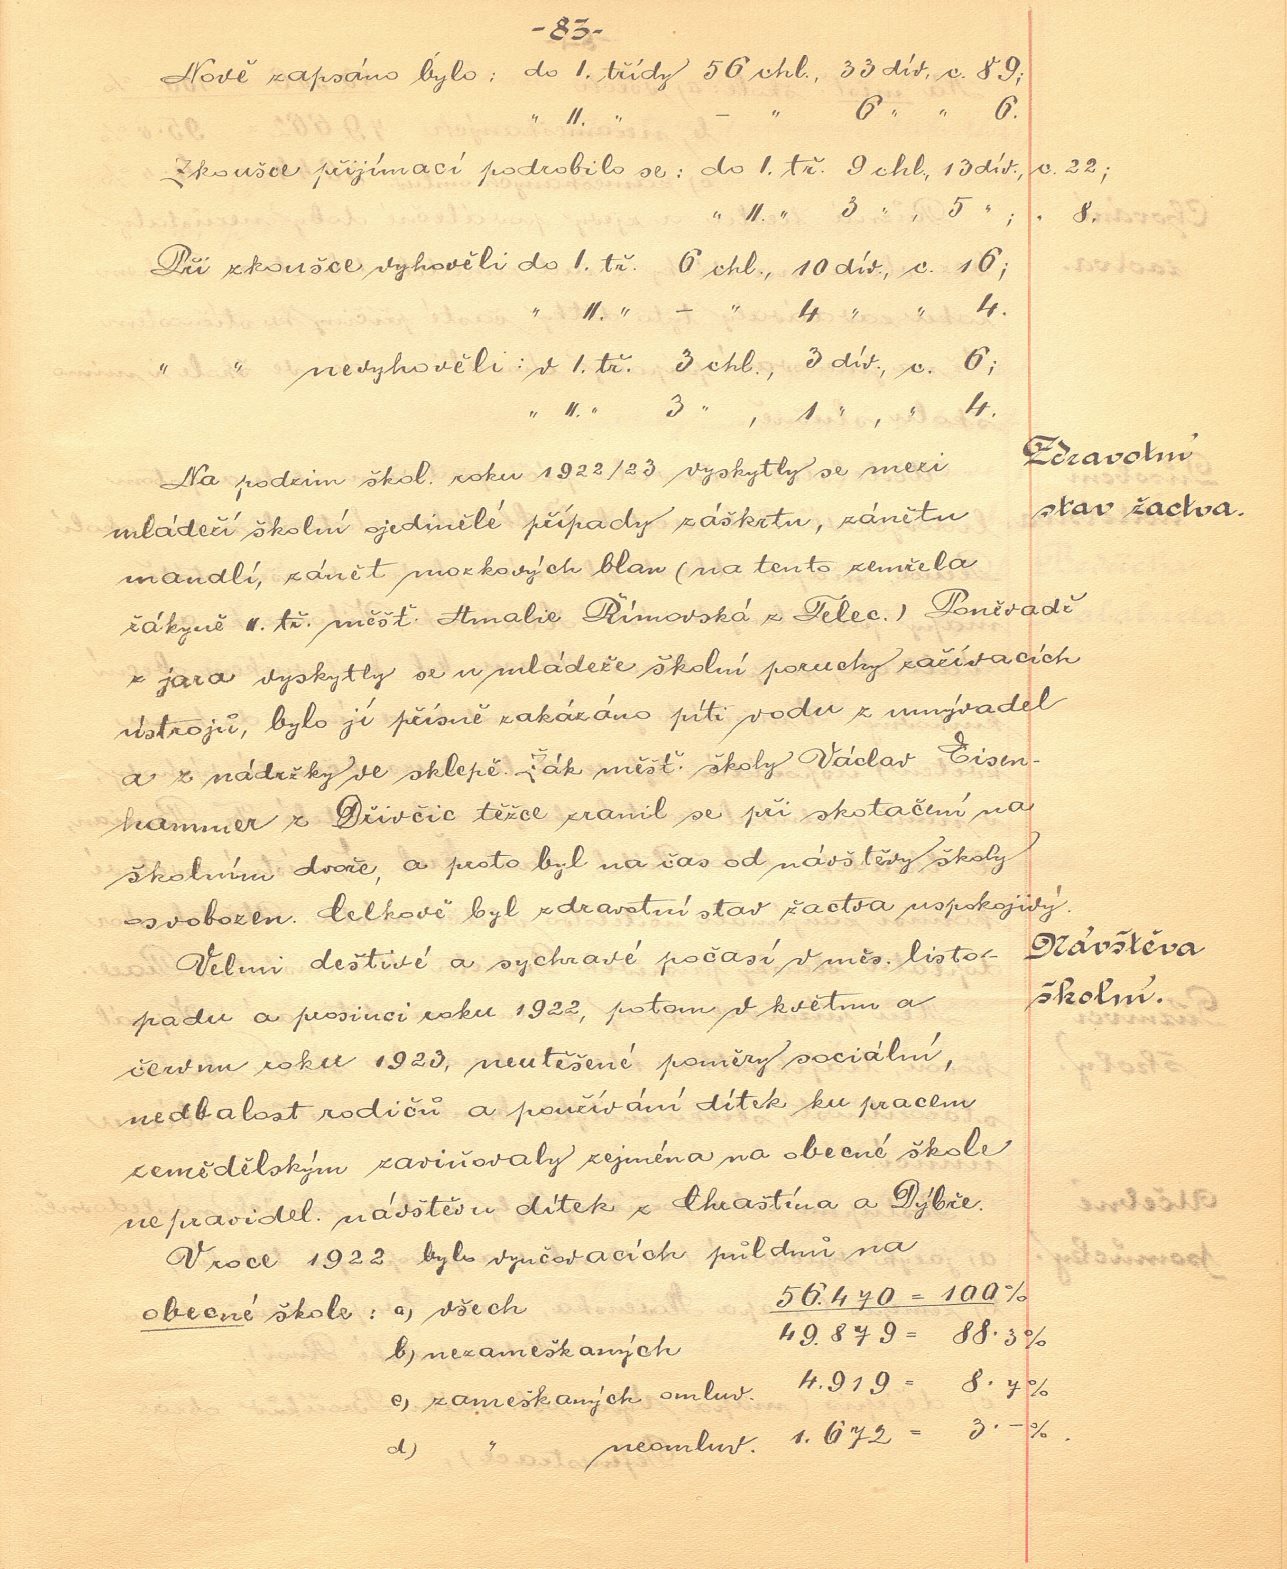 -83-
Nově zapsáno bylo: do I. třídy 56 chl., 33 dív., c. 89;
" II. " - " 6 " " 6.
Zkoušce přijímací podrobilo se: do I. tř. 9 chl., 13 dív., c. 22;
" II. " 3 " , 5 " ; " 8.
Při zkoušce vyhověli do I. tř. 6 chl., 10 dív., c. 16;
" II. " - " 4 " " 4.
" " nevyhověli: v I. tř. 3 chl., 3 dív., c. 6;
" II. " 3 " , 1 " , " 4.
Zdravotní
stav žactva.
Na podzim škol. roku 1922/23 vyskytly se mezi
mládeží školní ojedinělé případy záškrtu, zánětu
mandlí, zánět mozkových blan (na tento zemřela
žákyně II. tř. měšť. Amalie Římovská z Telec.) Poněvadž
z jara vyskytly se u mládeže školní poruchy zažívacích
ústrojů, bylo jí přísně zakázáno píti vodu z umývadel
a z nádržky ve sklepě. Žák měšť. školy Václav Eisen-
hammer z Dřivčic těžce zranil se při skotačení na
školním dvoře, a proto byl na čas od návštěvy školy
osvobozen. Celkově byl zdravotní stav žactva uspokojivý.
Návštěva
školní.
Velmi deštivé a sychravé počasí v měs. listo-
padu a prosinci roku 1922, potom v květnu a
červnu roku 1923, neutěšené poměry sociální,
nedbalost rodičů a používání dítek ku pracem
zemědělským zaviňovaly zejména na obecné škole
nepravidel. návštěvu dítek z Chraštína a Dýbře.
V roce 1922 bylo vyučovacích půldnů na
obecné škole: a) všech 56.470 = 100%
b) nezameškaných 49.879 = 88.3%
c) zameškaných omluv. 4.919 = 8.7%
d) " neomluv. 1.672 = 3.-%.